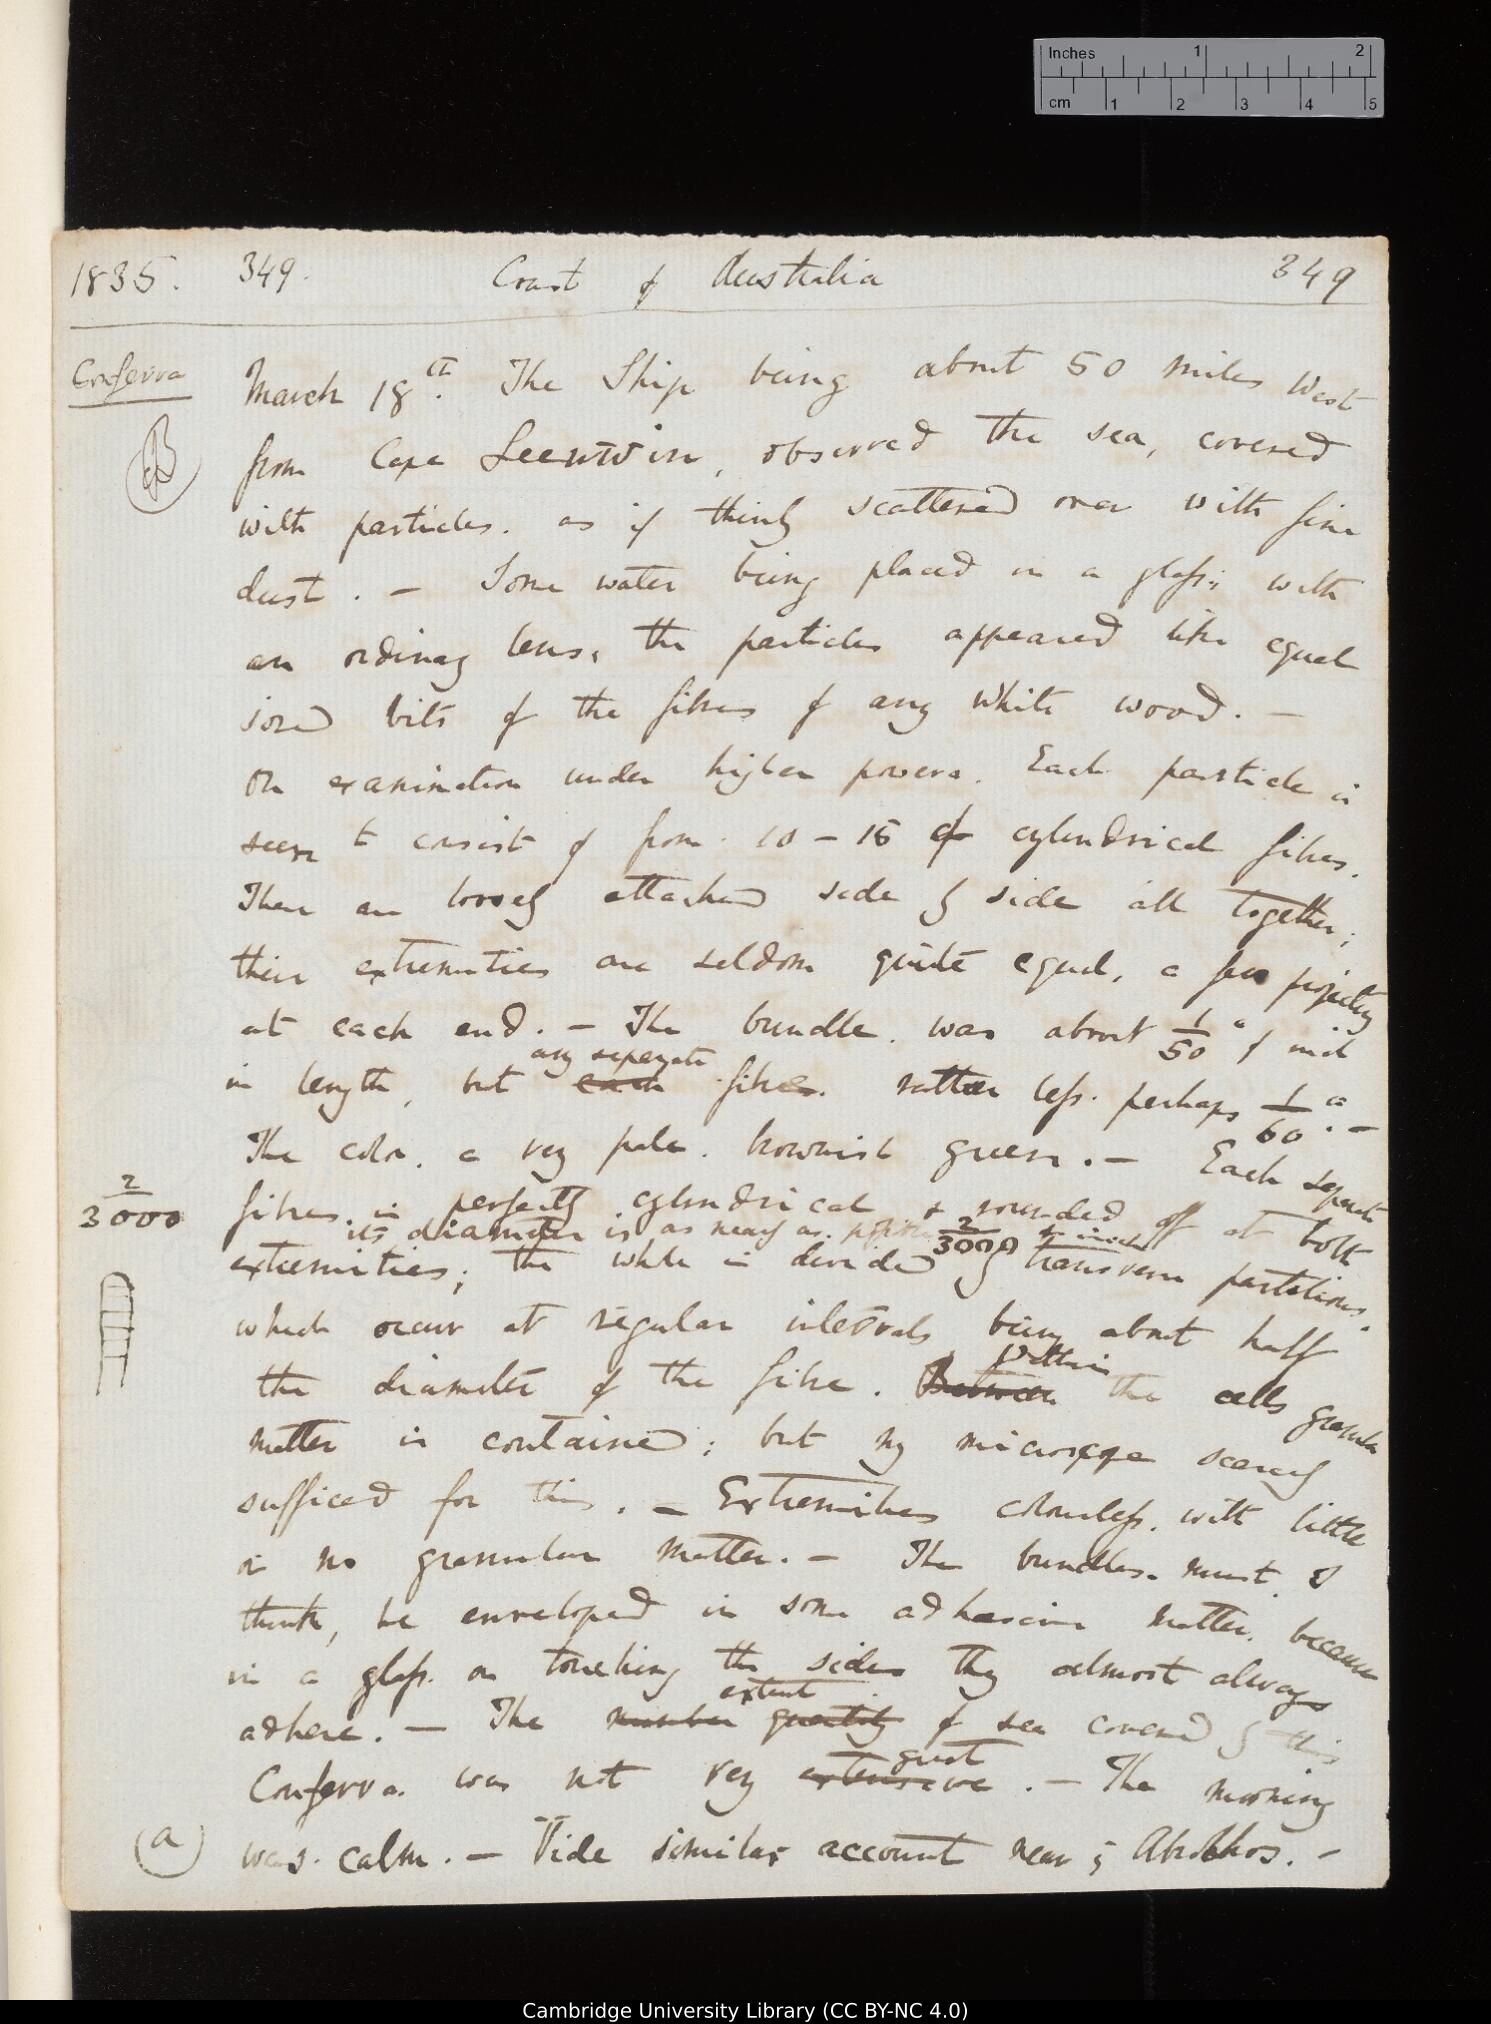 Inches 1 2
cm 1 2 3 4 5
1835. 349. Coast of Australia 349
Conferva
March 18th. The Ship being about 50 miles West
from Cape Leeuwin, observed the sea, covered
with particles. as if thinly scattered over with fine
dust. — Some water being placed in a glass; with
an ordinary lens, the particles appeared like equal
sized bits of the fibres of any white wood. —
On examination under higher powers. Each particle is
seen to consist of from 10 – 15 of cylindrical fibres.
These are loosely attached side by side all together;
their extremities are seldom quite equal, a few projecting
at each end. — The bundle was about 1/50" of inch
any seperate
in length, but each fibre. rather less. perhaps 1/60". —
The color. a very pale. brownish green. — Each seperate
2/3000
fibre. is perfectly cylindrical & rounded off at both
its diameter is as nearly as. possible 2/3000 of inch
extremities; the whole is divided by transverse partitions,
which occur at regular intervals being about half
Within
the diameter of the fibre. Between the cells granular
matter is contained; but my microscope scarcely
sufficed for this. — Extremities colourless. with little
or no granular matter. — The bundles. must I
think, be enveloped in some adhesive matter. because
in a glass. on touching the sides they almost always
extent
adhere. — The number quantity of sea covered by this
great
Conferva. was not very extensive. — The morning
(a)
was. calm. — Vide similar account near Abrolhos. —
Cambridge University Library (CC BY-NC 4.0)